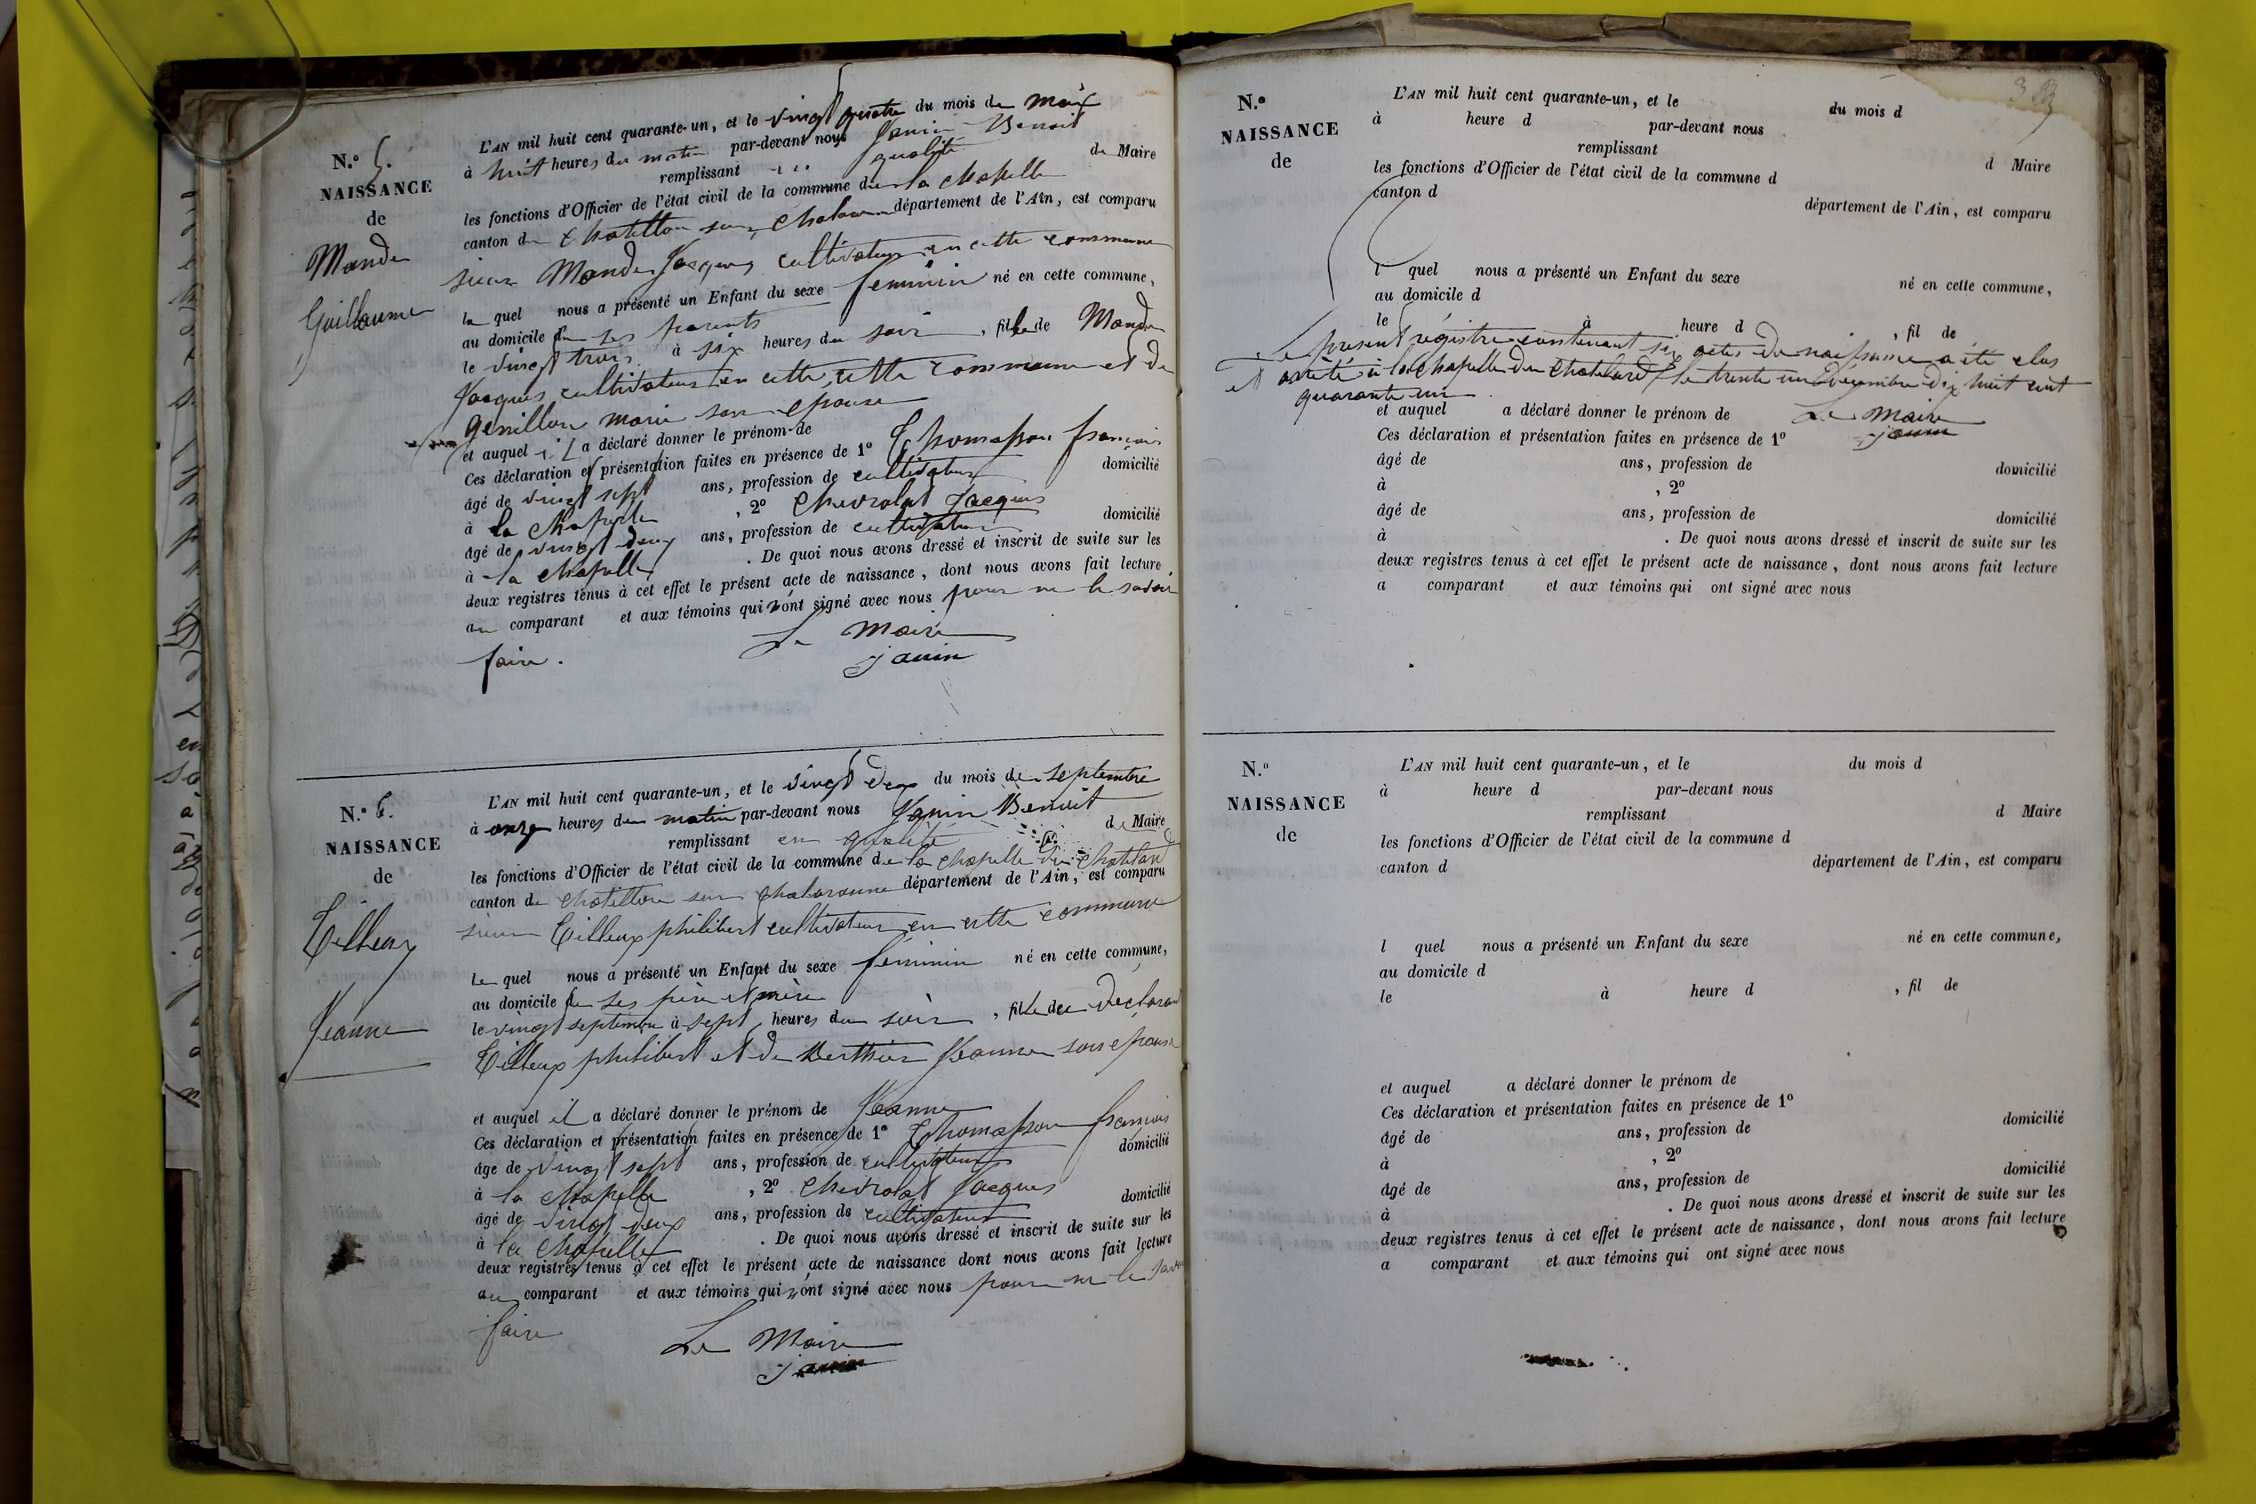 N.° 5.
NAISSANCE
de
Mandu
Guillaume
L'AN mil huit cent quarante-un, et le vingt quatre du mois de mai
à huit heures du matin par-devant nous Janin Benoit
remplissant qualité de Maire
les fonctions d'Officier de l'état civil de la commune de la chapelle
canton de chatillon sur chalaronne département de l'Ain, est comparu
sieur Mandu Jacques cultivateur en cette commune
le quel nous a présenté un Enfant du sexe feminin né en cette commune,
au domicile de ses parents
le vingt trois à six heures du soir, fille de Mandu
Jacques cultivateur en cette cette commune et de
genillon marie son epouse
et auquel il a déclaré donner le prénom de
Ces déclaration et présentation faites en présence de 1° Thomasson françois
âgé de vingt sept ans, profession de cultivateur domicilié
à la chapelle, 2° chevrolat Jacques
âgé de vingt deux ans, profession de cultivateur domicilié
à la chapelle. De quoi nous avons dressé et inscrit de suite sur les
deux registres tenus à cet effet le présent acte de naissance, dont nous avons fait lecture
au comparant et aux témoins qui n'ont signé avec nous pour ne le savoir
faire.
Le Maire
janin
N.° 6.
NAISSANCE
de
Tilleux
Jeanne
L'AN mil huit cent quarante-un, et le vingt deux du mois de septembre
à onze heures du matin par-devant nous Janin Benoit
remplissant en qualité de Maire
les fonctions d'Officier de l'état civil de la commune de la chapelle du chatelard
canton de chatillon sur chalaronne département de l'Ain, est comparu
sieur Tilleux philibert cultivateur en cette commune
le quel nous a présenté un Enfant du sexe féminin né en cette commune,
au domicile de ses père et mère
le vingt septembre à sept heures du soir, fille de declarant
Tilleux philibert et de Berthier Jeanne son epouse
et auquel il a déclaré donner le prénom de Jeanne
Ces déclaration et présentation faites en présence de 1° Thomasson françois
âge de vingt sept ans, profession de cultivateur domicilié
à la chapelle, 2° chevrolat Jacques
âgé de vingt deux ans, profession de cultivateur domicilié
à la chapelle. De quoi nous avons dressé et inscrit de suite sur les
deux registres tenus à cet effet le présent acte de naissance dont nous avons fait lecture
au comparant et aux témoins qui n'ont signé avec nous pour ne le savoir
faire
Le Maire
janin
N.°
NAISSANCE
de
L'AN mil huit cent quarante-un, et le du mois d
à heure d par-devant nous
remplissant d Maire
les fonctions d'Officier de l'état civil de la commune d
canton d département de l'Ain, est comparu
l quel nous a présenté un Enfant du sexe né en cette commune,
au domicile d
le à heure d, fil de
Le present régistre contenant six actes de naissance a été clos
et arrêté à la chapelle du chatelard le trente un décembre dix huit cent
quarante un
et auquel a déclaré donner le prénom de
Le Maire
janin
Ces déclaration et présentation faites en présence de 1°
âgé de ans, profession de domicilié
à, 2°
âgé de ans, profession de domicilié
à. De quoi nous avons dressé et inscrit de suite sur les
deux registres tenus à cet effet le présent acte de naissance, dont nous avons fait lecture
a comparant et aux témoins qui ont signé avec nous
N.°
NAISSANCE
de
L'AN mil huit cent quarante-un, et le du mois d
à heure d par-devant nous
remplissant d Maire
les fonctions d'Officier de l'état civil de la commune d
canton d département de l'Ain, est comparu
l quel nous a présenté un Enfant du sexe né en cette commune,
au domicile d
le à heure d, fil de
et auquel a déclaré donner le prénom de
Ces déclaration et présentation faites en présence de 1°
âgé de ans, profession de domicilié
à, 2°
âgé de ans, profession de domicilié
à. De quoi nous avons dressé et inscrit de suite sur les
deux registres tenus à cet effet le présent acte de naissance, dont nous avons fait lecture
a comparant et aux témoins qui ont signé avec nous